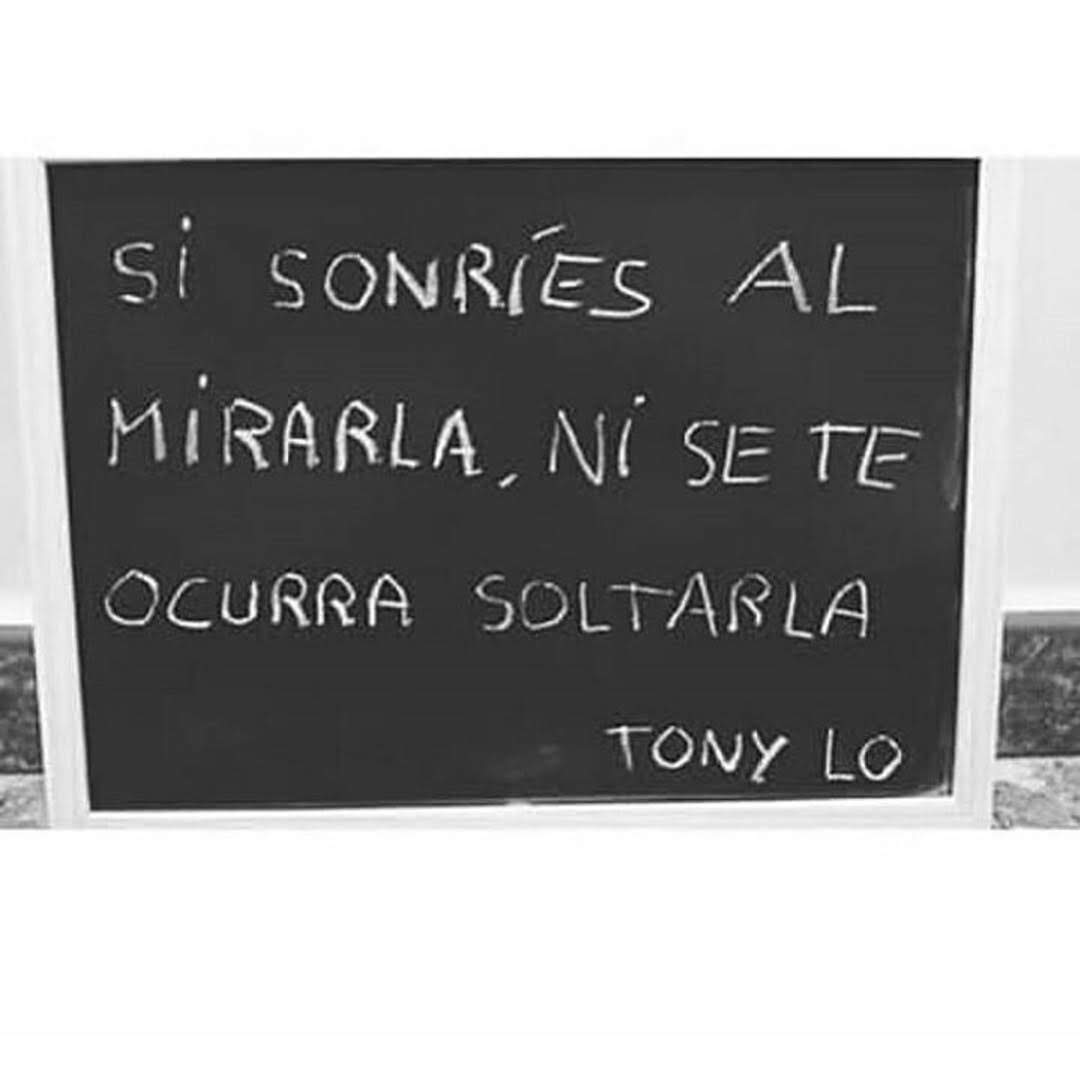 Si SONRÍES AL
MiRARLA, Ni SE TE
OCURRA SOLTARLA
TONY LO